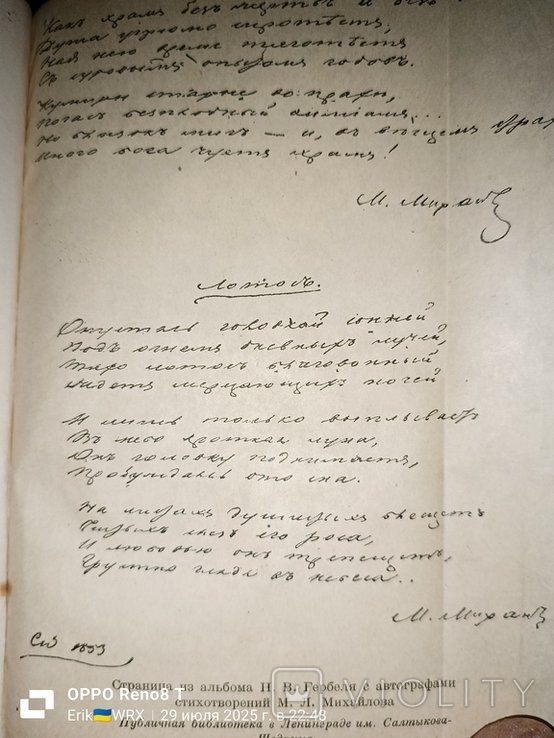 Какъ храмъ безъ
Душа угрюмо сиротѣетъ,
Надъ нею время тяготѣетъ
Съ суровымъ опытомъ годовъ.
Кумиры старые во прахѣ,
Погасъ безплодный ѳиміамъ...
Но близокъ мигъ — и, въ вѣщемъ
Иного бога чуетъ храмъ!
М. Михайловъ
Лотосъ.
Опустясь головкой сонной
Подъ огнемъ дневныхъ лучей,
Тихо лотосъ благовонный
Ждетъ мерцающихъ ночей
И лишь только выплываетъ
Въ небо кроткая луна,
Онъ головку поднимаетъ,
Пробуждаясь ото сна.
На листахъ душистыхъ блещетъ
Чистыхъ слезъ его роса,
И любовью онъ трепещетъ,
Грустно глядя въ небеса..
М. Михайловъ
СПб 1853
Страница из альбома Н. В. Гербеля с автографами
стихотворений М. Л. Михайлова
Публичная библиотека в Ленинграде им. Салтыкова-
Щедрина
OPPO Reno8 T
Erik🇺🇦WRX | 29 июля 2025 г. в 22:48
VIOLITY